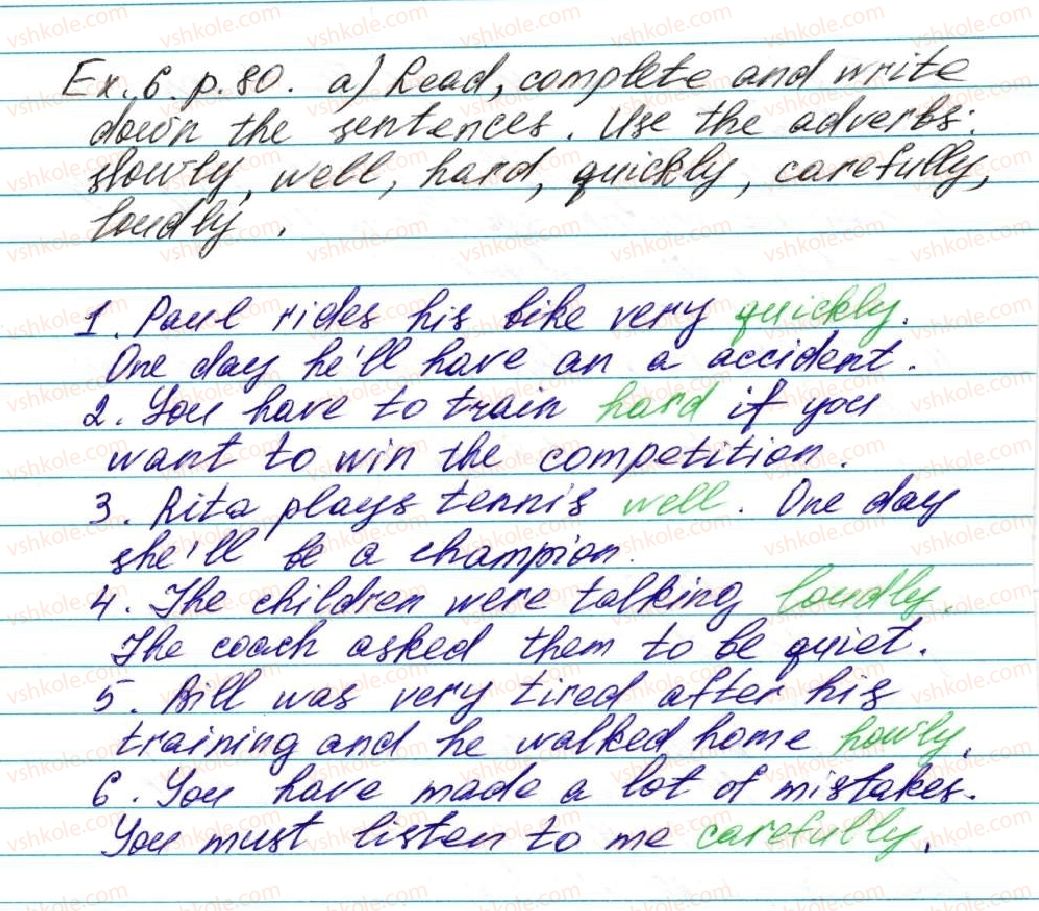 Ex. 6 p. 80. a) Read, complete and write
down the sentences. Use the adverbs:
slowly, well, hard, quickly, carefully,
loudly.
1. Paul rides his bike very quickly.
One day he'll have an a accident.
2. You have to train hard if you
want to win the competition.
3. Rita plays tennis well. One day
she'll be a champion.
4. The children were talking loudly.
The coach asked them to be quiet.
5. Bill was very tired after his
training and he walked home howly.
6. You have made a lot of mistakes.
You must listen to me carefully.